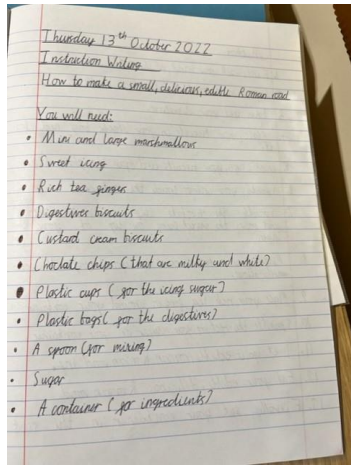 Thursday 13th October 2022
Instruction Writing
How to make a small, delicious, edible Roman road
You will need:
• Mini and large marshmallows
• Sweet icing
• Rich tea fingers
• Digestives biscuits
• Custard cream biscuits
• Choclate chips (that are milky and white)
• Plastic cups (for the icing sugar)
• Plastic bags (for the digestives)
• A spoon (for mixing)
• Sugar
• A container (for ingredients)